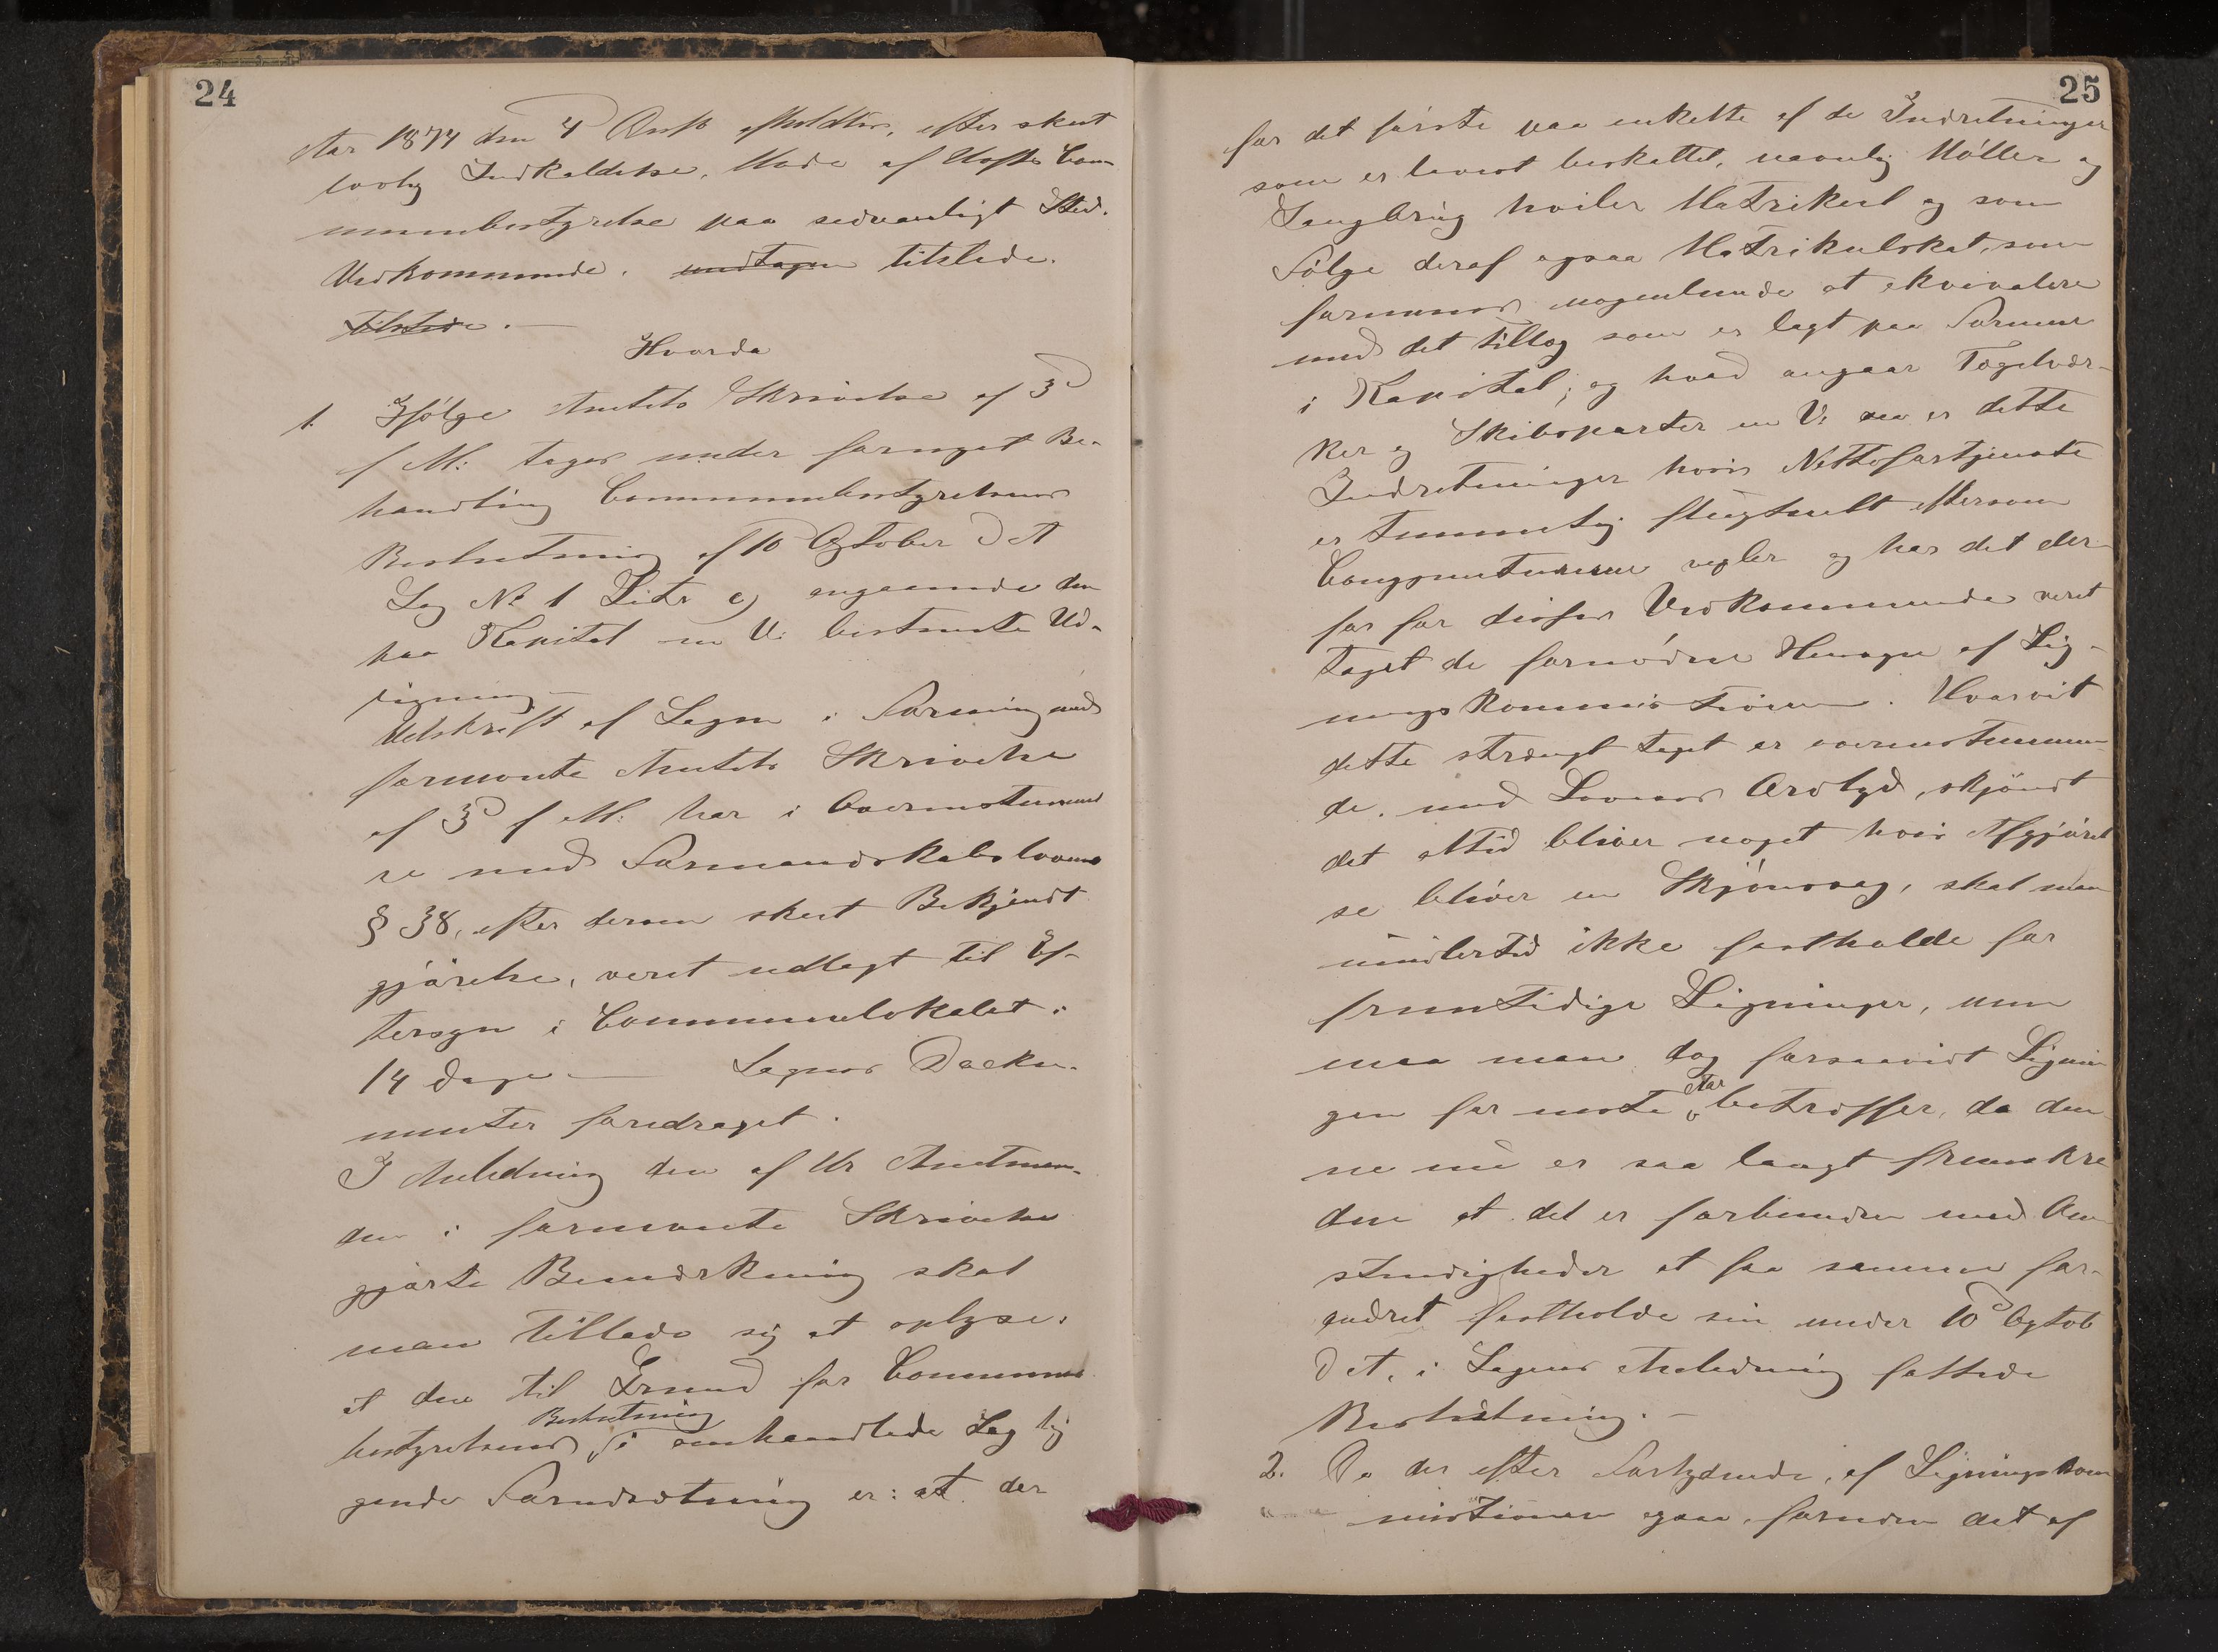 24
Aar 1874 den 4 afholdtes, efter skeet
lovlig Indkaldelse, Møde af Com-
munebestyrelse paa sedvanligt Sted.
Vedkommende. undtagen tilstede.
tilstede. —
Hvorda
1. Ifølge Amtets Skrivelse af 3d
f M: toges under fornyet Be-
handling Communebestyrelsens
Beslutning af 10 Oktober d A
Sag No 1 Litr c) angaaende den
paa Kapital m V. bestemte Ud-
ligning —
Udskrift af Sagen i Forening med
formente Amtets Skrivelse
af 3d f M: har i Overensstemmel
se med Formandskabslovens
§ 38, efter derom skeet Bekjendt
gjørelse, veret udlagt til Ef-
tersyn i Communelokalet i
14 Dage — Sagens Doeku-
menter foredraget.
I Anledning den af Hr Amtman-
den i formente Skrivelse
gjørte Bemerkning skal
man tillade sig at oplyse:
at den til Grund for Commune
bestyrelsens Beslutning i omhandlede Sag lig
gende Forudsætning er: at der
25
for det første paa enkelte af de Indretninger
som er lavest beskattet, navnlig Møller og
Saugbrug hviler Matrikul og som
Følge deraf ogsaa Matrikulskat, som
formenes nogenlunde at ekvivalere
med det tillæg som er lagt paa Formue
i Kapital; og hvad angaar Tegelvær-
ker og Skibsparter m V. saa er dette
Indretninger hvis Nettofortjeneste
er temmelig eftersom
Conjunkturerne vexler og har det der
for for disses Vedkommende veret
taget de fornødne Hensyn af Lig-
ningskommissionen. Hvorvit
dette strengt taget er overensstemmen
de. med Lovens Ordlyd, skjøndt
det altid bliver noget hvis Afgjørel
se bliver en Skjønssag, skal man
imidlertid ikke fastholde for
fremtidige Ligninger, men
maa man dog forsaavidt Lignin
gen for neste Aar betreffer, da den
ne nu er saa langt fremskre
den at det er forbunden med Om
stendigheder at faa samme for-
andret fastholde sin under 10d Oktob
d A. i Sagens Anledning fattede
Beslutning. —
2. Da der efter Forlydende, af Ligningskom
missionen ogsaa, foruden det af